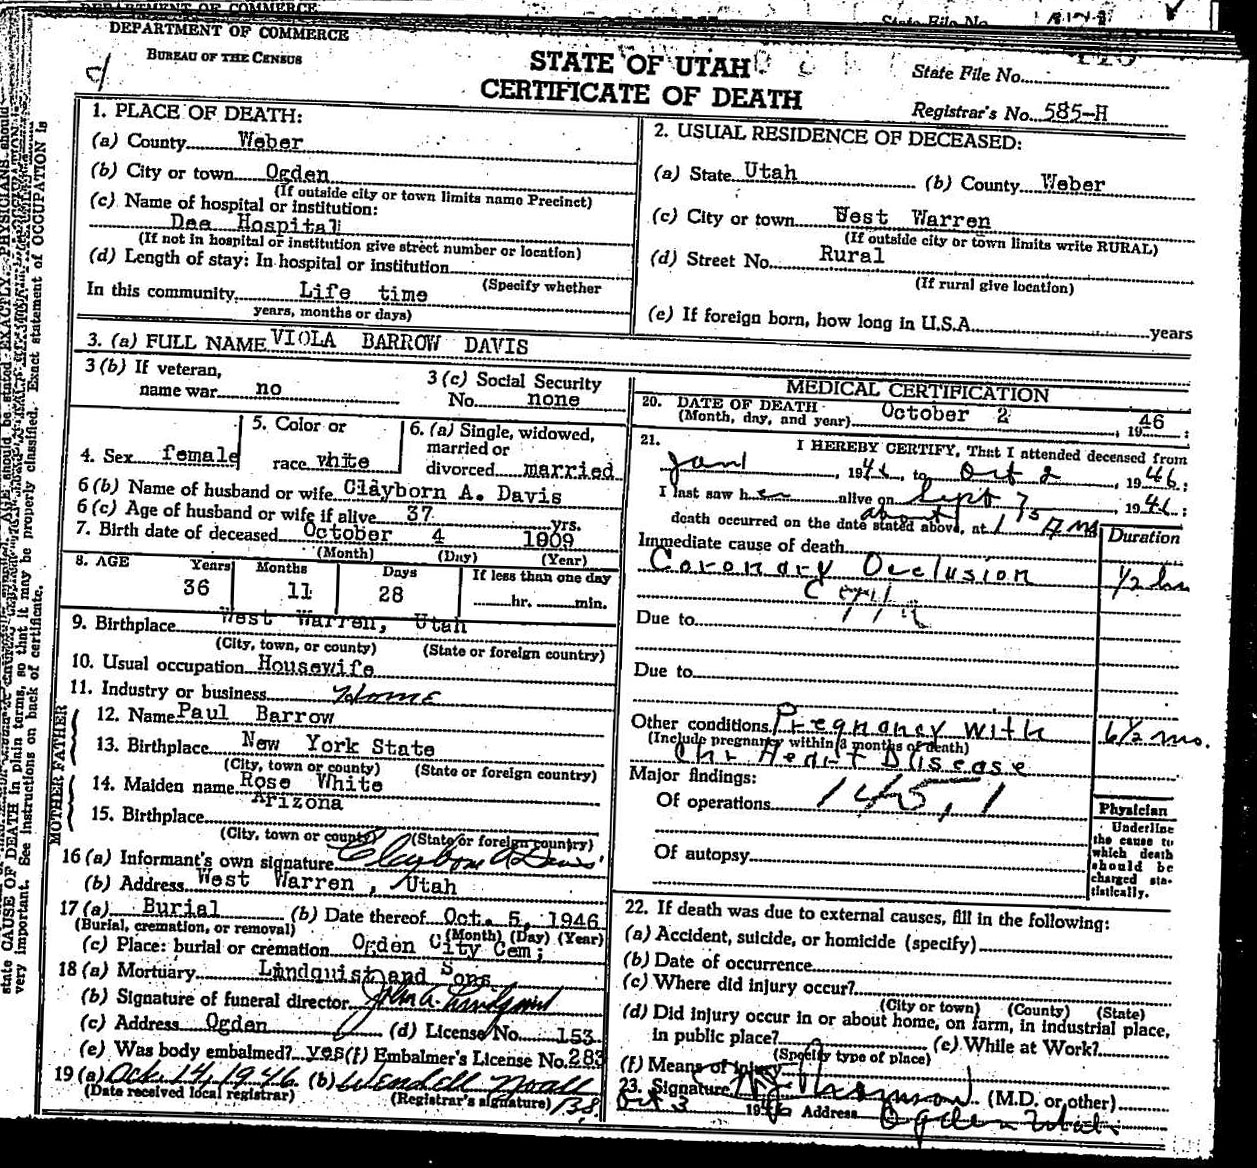 DEPARTMENT OF COMMERCE
State File No.
DEPARTMENT OF COMMERCE
BUREAU OF THE CENSUS
STATE OF UTAH
CERTIFICATE OF DEATH
State File No.
Registrar's No. 585-H
1. PLACE OF DEATH:
(a) County Weber
(b) City or town Ogden
(If outside city or town limits name Precinct)
(c) Name of hospital or institution:
Dee Hospital
(If not in hospital or institution give street number or location)
(d) Length of stay: In hospital or institution
(Specify whether
In this community Life time
years, months or days)
2. USUAL RESIDENCE OF DECEASED:
(a) State Utah (b) County Weber
(c) City or town West Warren
(If outside city or town limits write RURAL)
(d) Street No. Rural
(If rural give location)
(e) If foreign born, how long in U.S.A. years
3. (a) FULL NAME VIOLA BARROW DAVIS
3 (b) If veteran,
name war no
3 (c) Social Security
No. none
4. Sex female
5. Color or
race white
6. (a) Single, widowed,
married or
divorced married
6 (b) Name of husband or wife Clayborn A. Davis
6 (c) Age of husband or wife if alive 37 yrs.
7. Birth date of deceased October 4 1909
(Month) (Day) (Year)
8. AGE Years Months Days If less than one day
36 11 28 hr. min.
9. Birthplace West Warren, Utah
(City, town, or county) (State or foreign country)
10. Usual occupation Housewife
11. Industry or business Home
FATHER
12. Name Paul Barrow
13. Birthplace New York State
(City, town or county) (State or foreign country)
MOTHER
14. Maiden name Rose White
Arizona
15. Birthplace
(City, town or county) (State or foreign country)
16 (a) Informant's own signature Clayborn A Davis
(b) Address West Warren, Utah
17 (a) Burial (b) Date thereof Oct. 5, 1946
(Burial, cremation, or removal) (Month) (Day) (Year)
(c) Place: burial or cremation Ogden City Cem;
18 (a) Mortuary Lindquist and Sons
(b) Signature of funeral director John A. Lindquist
(c) Address Ogden (d) License No. 153
(e) Was body embalmed? yes (f) Embalmer's License No. 283
19 (a) Oct. 14, 1946 (b) Wendell Noall
(Date received local registrar) (Registrar's signature)
MEDICAL CERTIFICATION
20. DATE OF DEATH
(Month, day, and year) October 2, 1946;
21. I HEREBY CERTIFY, That I attended deceased from
Jan 1, 19 to Oct 2, 1946;
I last saw her alive on Sept 7, 1946;
death occurred on the date stated above, at about 1
Duration
Immediate cause of death
Coronary Occlusion 1/2 hr
Due to
Due to
Other conditions Pregnancy with 6 1/2 mo.
(Include pregnancy within 3 months of death)
Chr Heart Disease
Major findings:
Of operations 145.1
Of autopsy
Physician
Underline
the cause to
which death
should be
charged sta-
tistically.
22. If death was due to external causes, fill in the following:
(a) Accident, suicide, or homicide (specify)
(b) Date of occurrence
(c) Where did injury occur?
(City or town) (County) (State)
(d) Did injury occur in or about home, on farm, in industrial place,
in public place? (e) While at Work?
(Specify type of place)
(f) Means of injury
23. Signature Thomson (M.D. or other)
Oct 3 1946 Address Ogden Utah
state CAUSE OF DEATH in plain terms, so that it may be properly classified. Exact statement of OCCUPATION is
very important. See instructions on back of certificate.